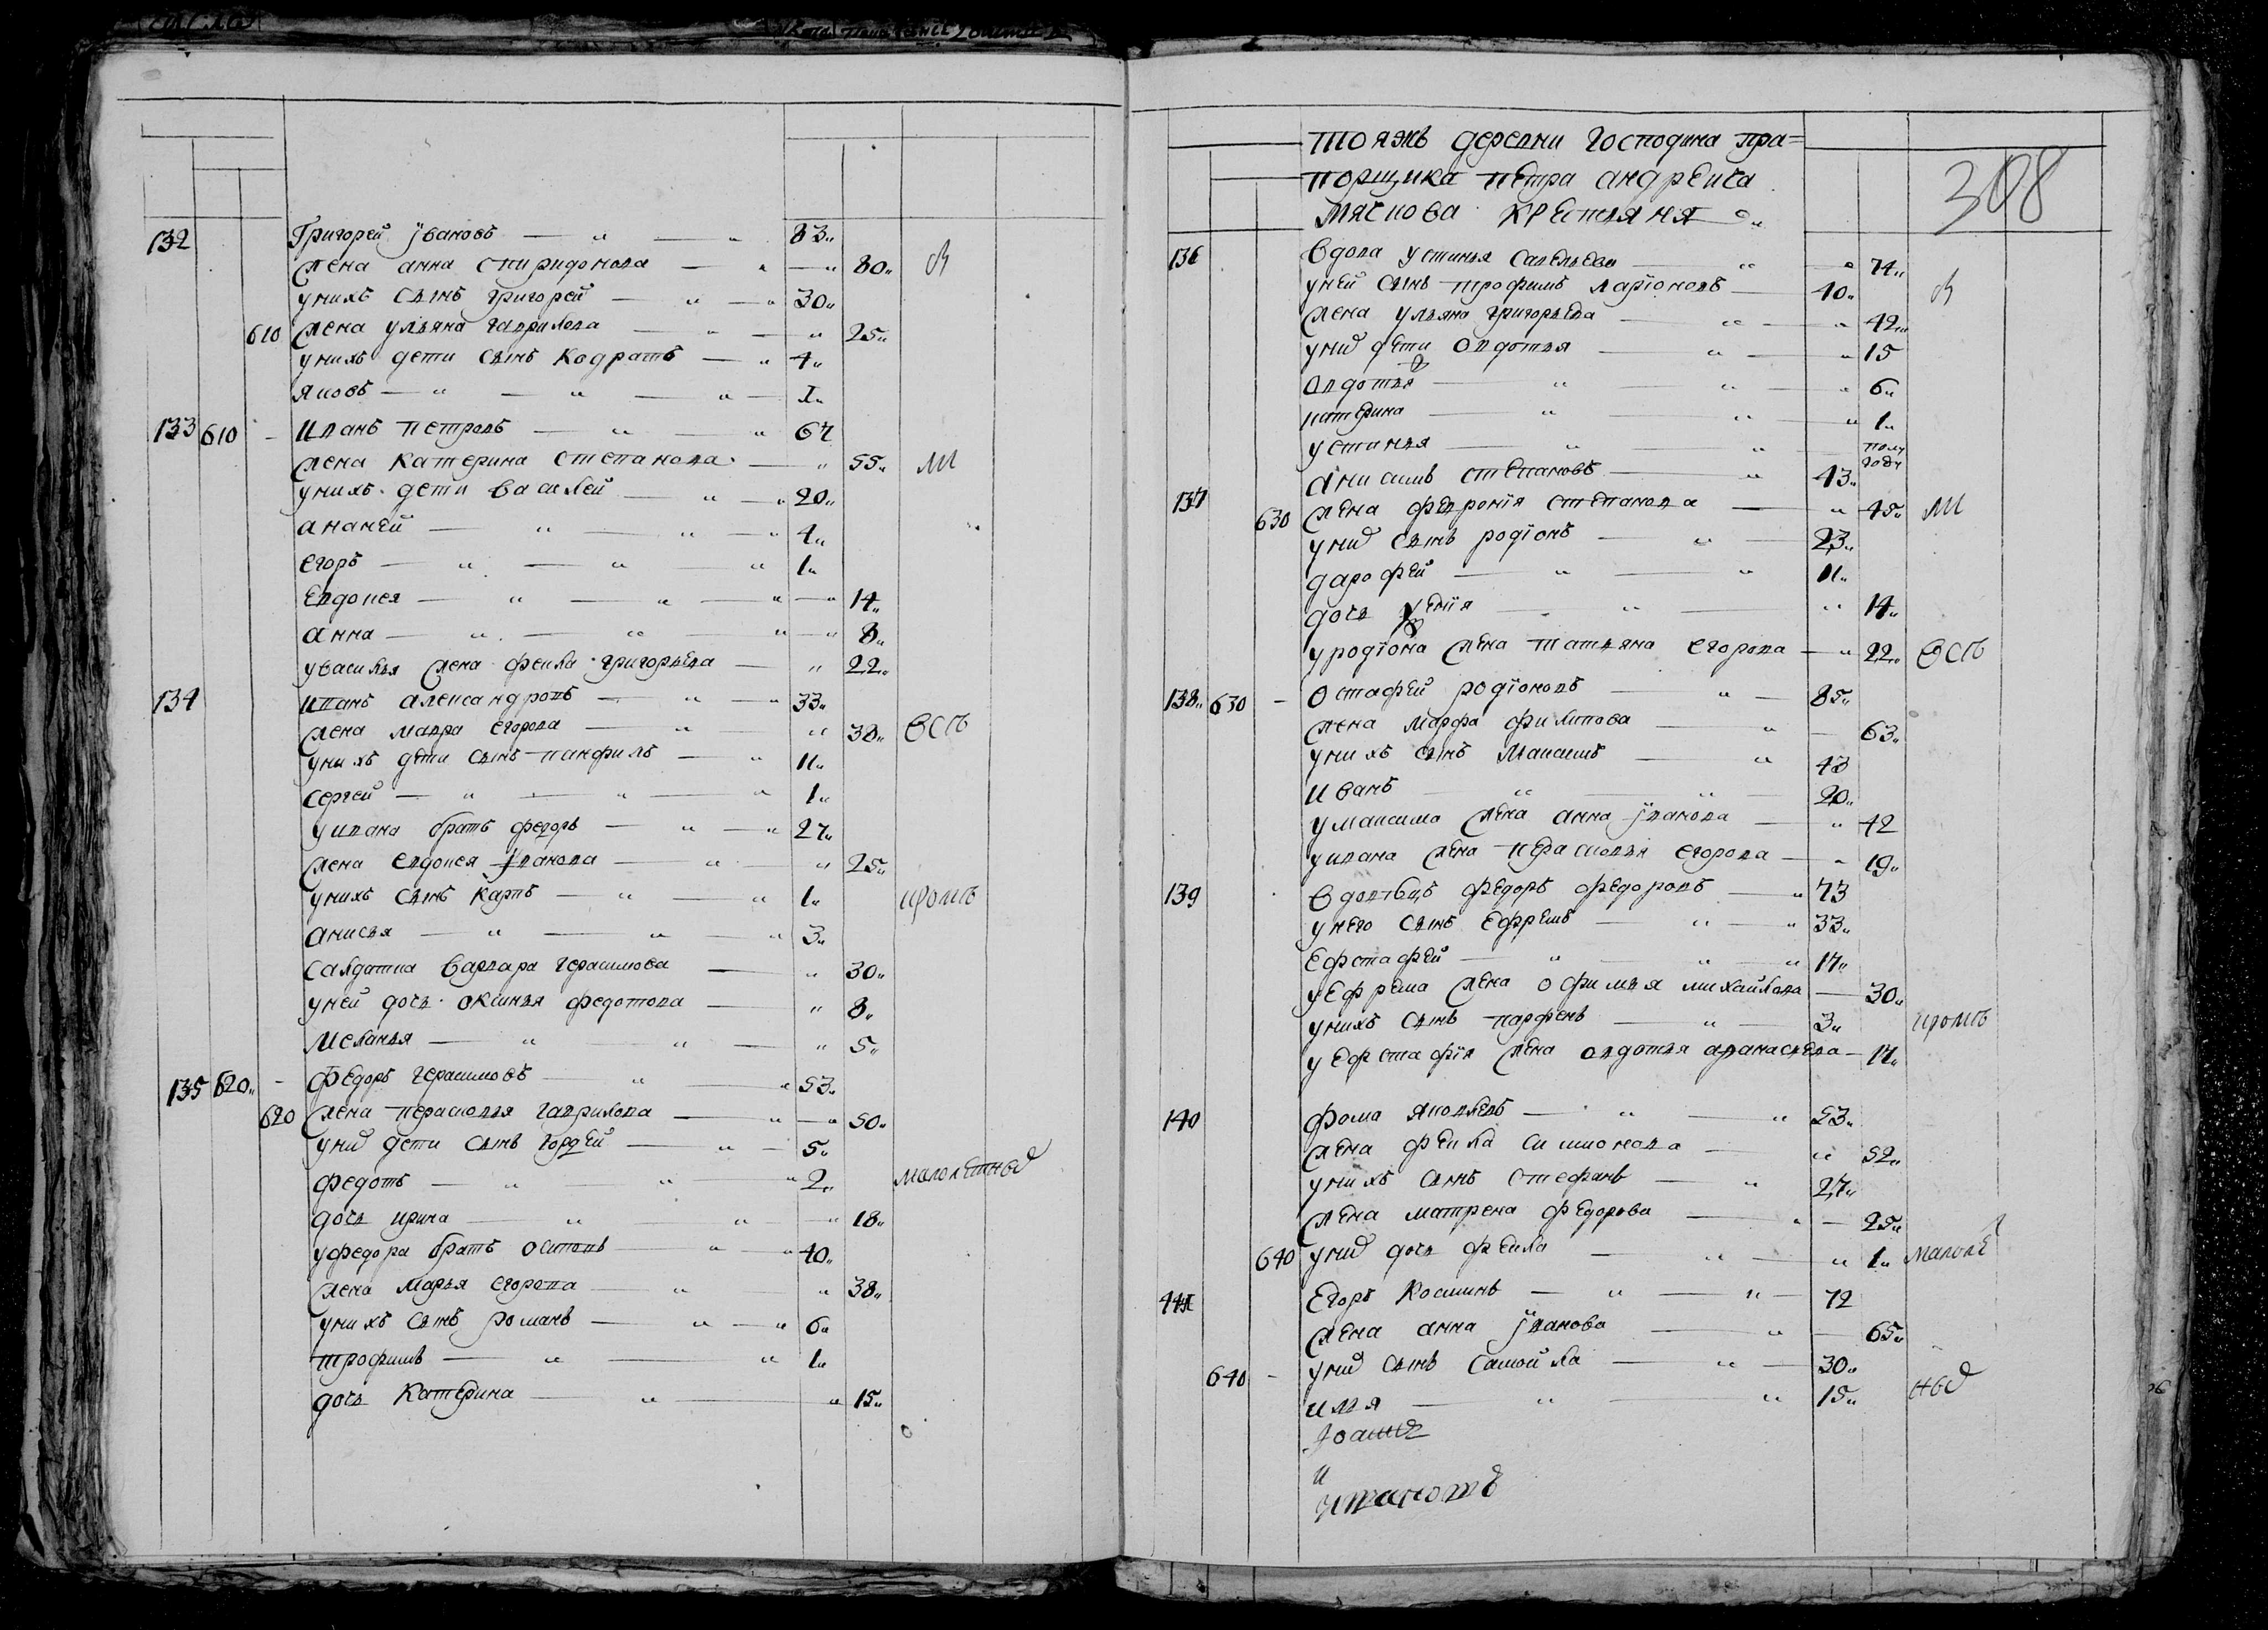 132 Григорей Ивановъ 83
жена анна спиридонова 80 В
унихъ сынъ григорей 30
610 жена ульяна гаврилова 25
унихъ дети сынъ кодратъ 4
яковъ 1
133 610 иванъ петровъ 67
жена катерина степанова 55 М
унихъ дети василей 20
ананей 4
егоръ 1
евдокея 14
анна 8
увасилья жена фекла григорьева 22
134 иванъ александровъ 33
жена мавра егорова 30 ВСѢ
унихъ дети сынъ панфилъ 11
сергей 1
уивана братъ федоръ 27
жена евдокея Иванова 25
унихъ сынъ карпъ 1 кромѣ
анисья 3
салдатка варвара герасимова 30
уней дочь оксинья федотова 8
меланья 5
135 620 федоръ герасимовъ 53
620 жена перасковья гаврилова 50
уних дети сынъ гордей 5
федотъ 2 малолетныхъ
дочь ирина 18
уфедора братъ осипъ 40
жена марья егорова 38
унихъ сынъ романъ 6
трофимъ 1
дочь катерина 15
308
тояжъ деревни господина пра=
порщика петра андреича
мяснова крестьяня
136 вдова устинья савельева 74
уней сынъ трофимъ ларионовъ 40 В
жена ульяна григорьева 42
уних дети овдотья 15
овдотья 6
катерина 1
устинья полу году
137 анисимъ степановъ 43
630 жена феврония степанова 45 М
уних сынъ родіонъ 23
дарофей 11
дочь 14
уродіона жена татьяна егорова 22 ВСѢ
138 630 остафей родіоновъ 85
жена марфа филипова 63
унихъ сынъ максимъ 43
иванъ 20
умаксима жена анна Иванова 42
уивана жена перасковья егорова 19
139 вдовецъ федоръ федоровъ 73
унего сынъ ефремъ 33
ефстафей 17
уефрема жена офимья михайлова 30
унихъ сынъ парфенъ 3 кромѣ
уефстафія жена овдотья афанасьева 17
140 фома яковлевъ 53
жена фекла симионова 52
унихъ сынъ стефанъ 27
жена матрена федорова 25
640 уних дочь фекла 1 малоле
141 егоръ косминъ 72
жена анна Иванова 65
640 уних сынъ самойла 30
илья 15 ныхъ
Іоаннъ
и